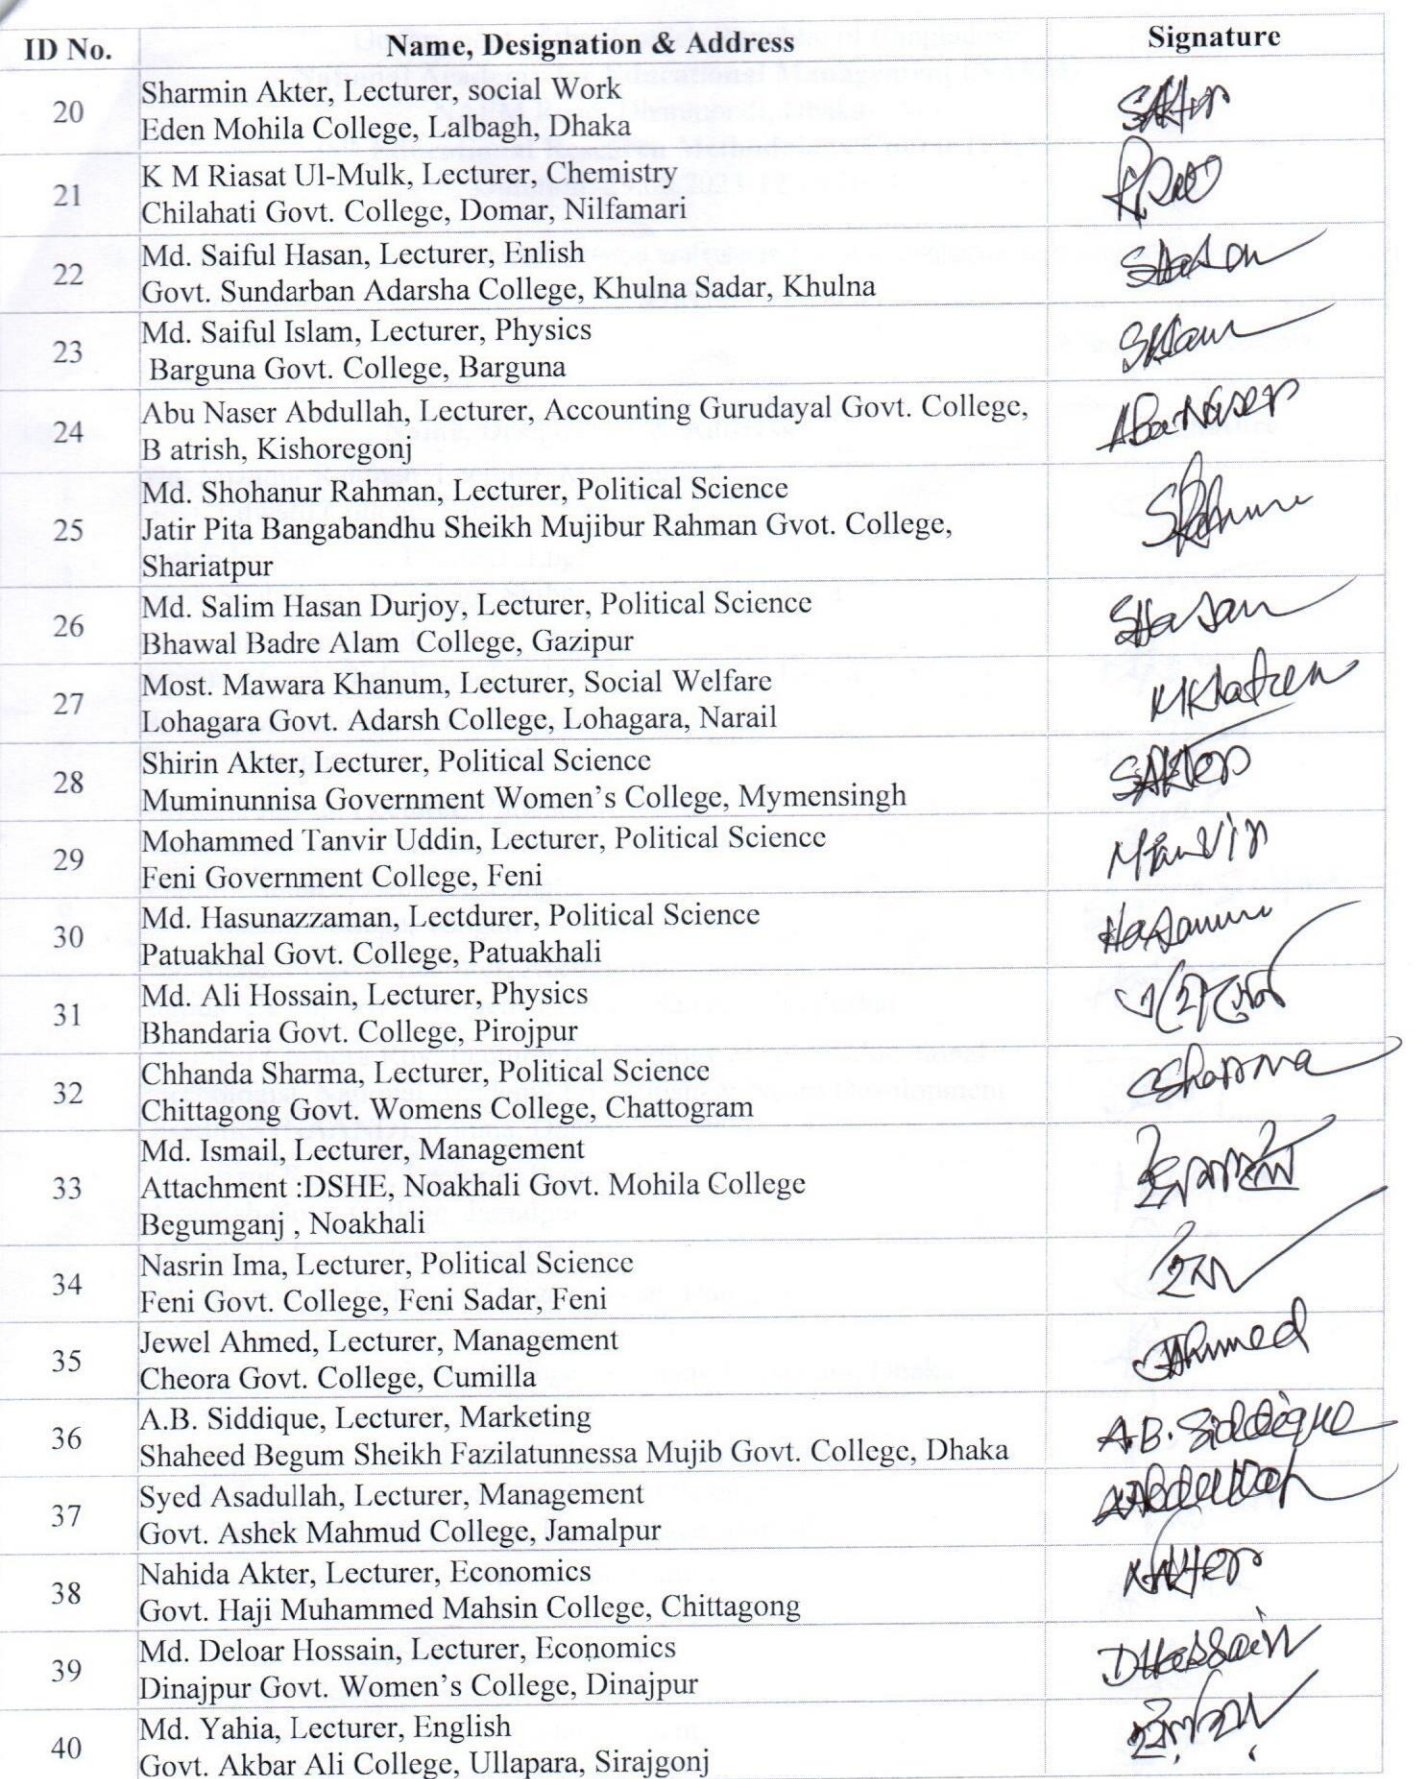 ID No. Name, Designation & Address Signature
20 Sharmin Akter, Lecturer, social Work SAkter
Eden Mohila College, Lalbagh, Dhaka
21 K M Riasat Ul-Mulk, Lecturer, Chemistry
Chilahati Govt. College, Domar, Nilfamari
22 Md. Saiful Hasan, Lecturer, Enlish SHasan
Govt. Sundarban Adarsha College, Khulna Sadar, Khulna
23 Md. Saiful Islam, Lecturer, Physics
Barguna Govt. College, Barguna
24 Abu Naser Abdullah, Lecturer, Accounting Gurudayal Govt. College, AbuNaser
B atrish, Kishoregonj
Md. Shohanur Rahman, Lecturer, Political Science
25 Jatir Pita Bangabandhu Sheikh Mujibur Rahman Gvot. College,
Shariatpur
26 Md. Salim Hasan Durjoy, Lecturer, Political Science SHasan
Bhawal Badre Alam College, Gazipur
27 Most. Mawara Khanum, Lecturer, Social Welfare
Lohagara Govt. Adarsh College, Lohagara, Narail
28 Shirin Akter, Lecturer, Political Science SAkter
Muminunnisa Government Women's College, Mymensingh
29 Mohammed Tanvir Uddin, Lecturer, Political Science MTanvir
Feni Government College, Feni
30 Md. Hasunazzaman, Lectdurer, Political Science
Patuakhal Govt. College, Patuakhali
31 Md. Ali Hossain, Lecturer, Physics
Bhandaria Govt. College, Pirojpur
32 Chhanda Sharma, Lecturer, Political Science CSharma
Chittagong Govt. Womens College, Chattogram
Md. Ismail, Lecturer, Management
33 Attachment :DSHE, Noakhali Govt. Mohila College
Begumganj , Noakhali
34 Nasrin Ima, Lecturer, Political Science
Feni Govt. College, Feni Sadar, Feni
35 Jewel Ahmed, Lecturer, Management JAhmed
Cheora Govt. College, Cumilla
36 A.B. Siddique, Lecturer, Marketing A.B. Siddique
Shaheed Begum Sheikh Fazilatunnessa Mujib Govt. College, Dhaka
37 Syed Asadullah, Lecturer, Management
Govt. Ashek Mahmud College, Jamalpur
38 Nahida Akter, Lecturer, Economics NAkter
Govt. Haji Muhammed Mahsin College, Chittagong
39 Md. Deloar Hossain, Lecturer, Economics DHossain
Dinajpur Govt. Women's College, Dinajpur
40 Md. Yahia, Lecturer, English
Govt. Akbar Ali College, Ullapara, Sirajgonj